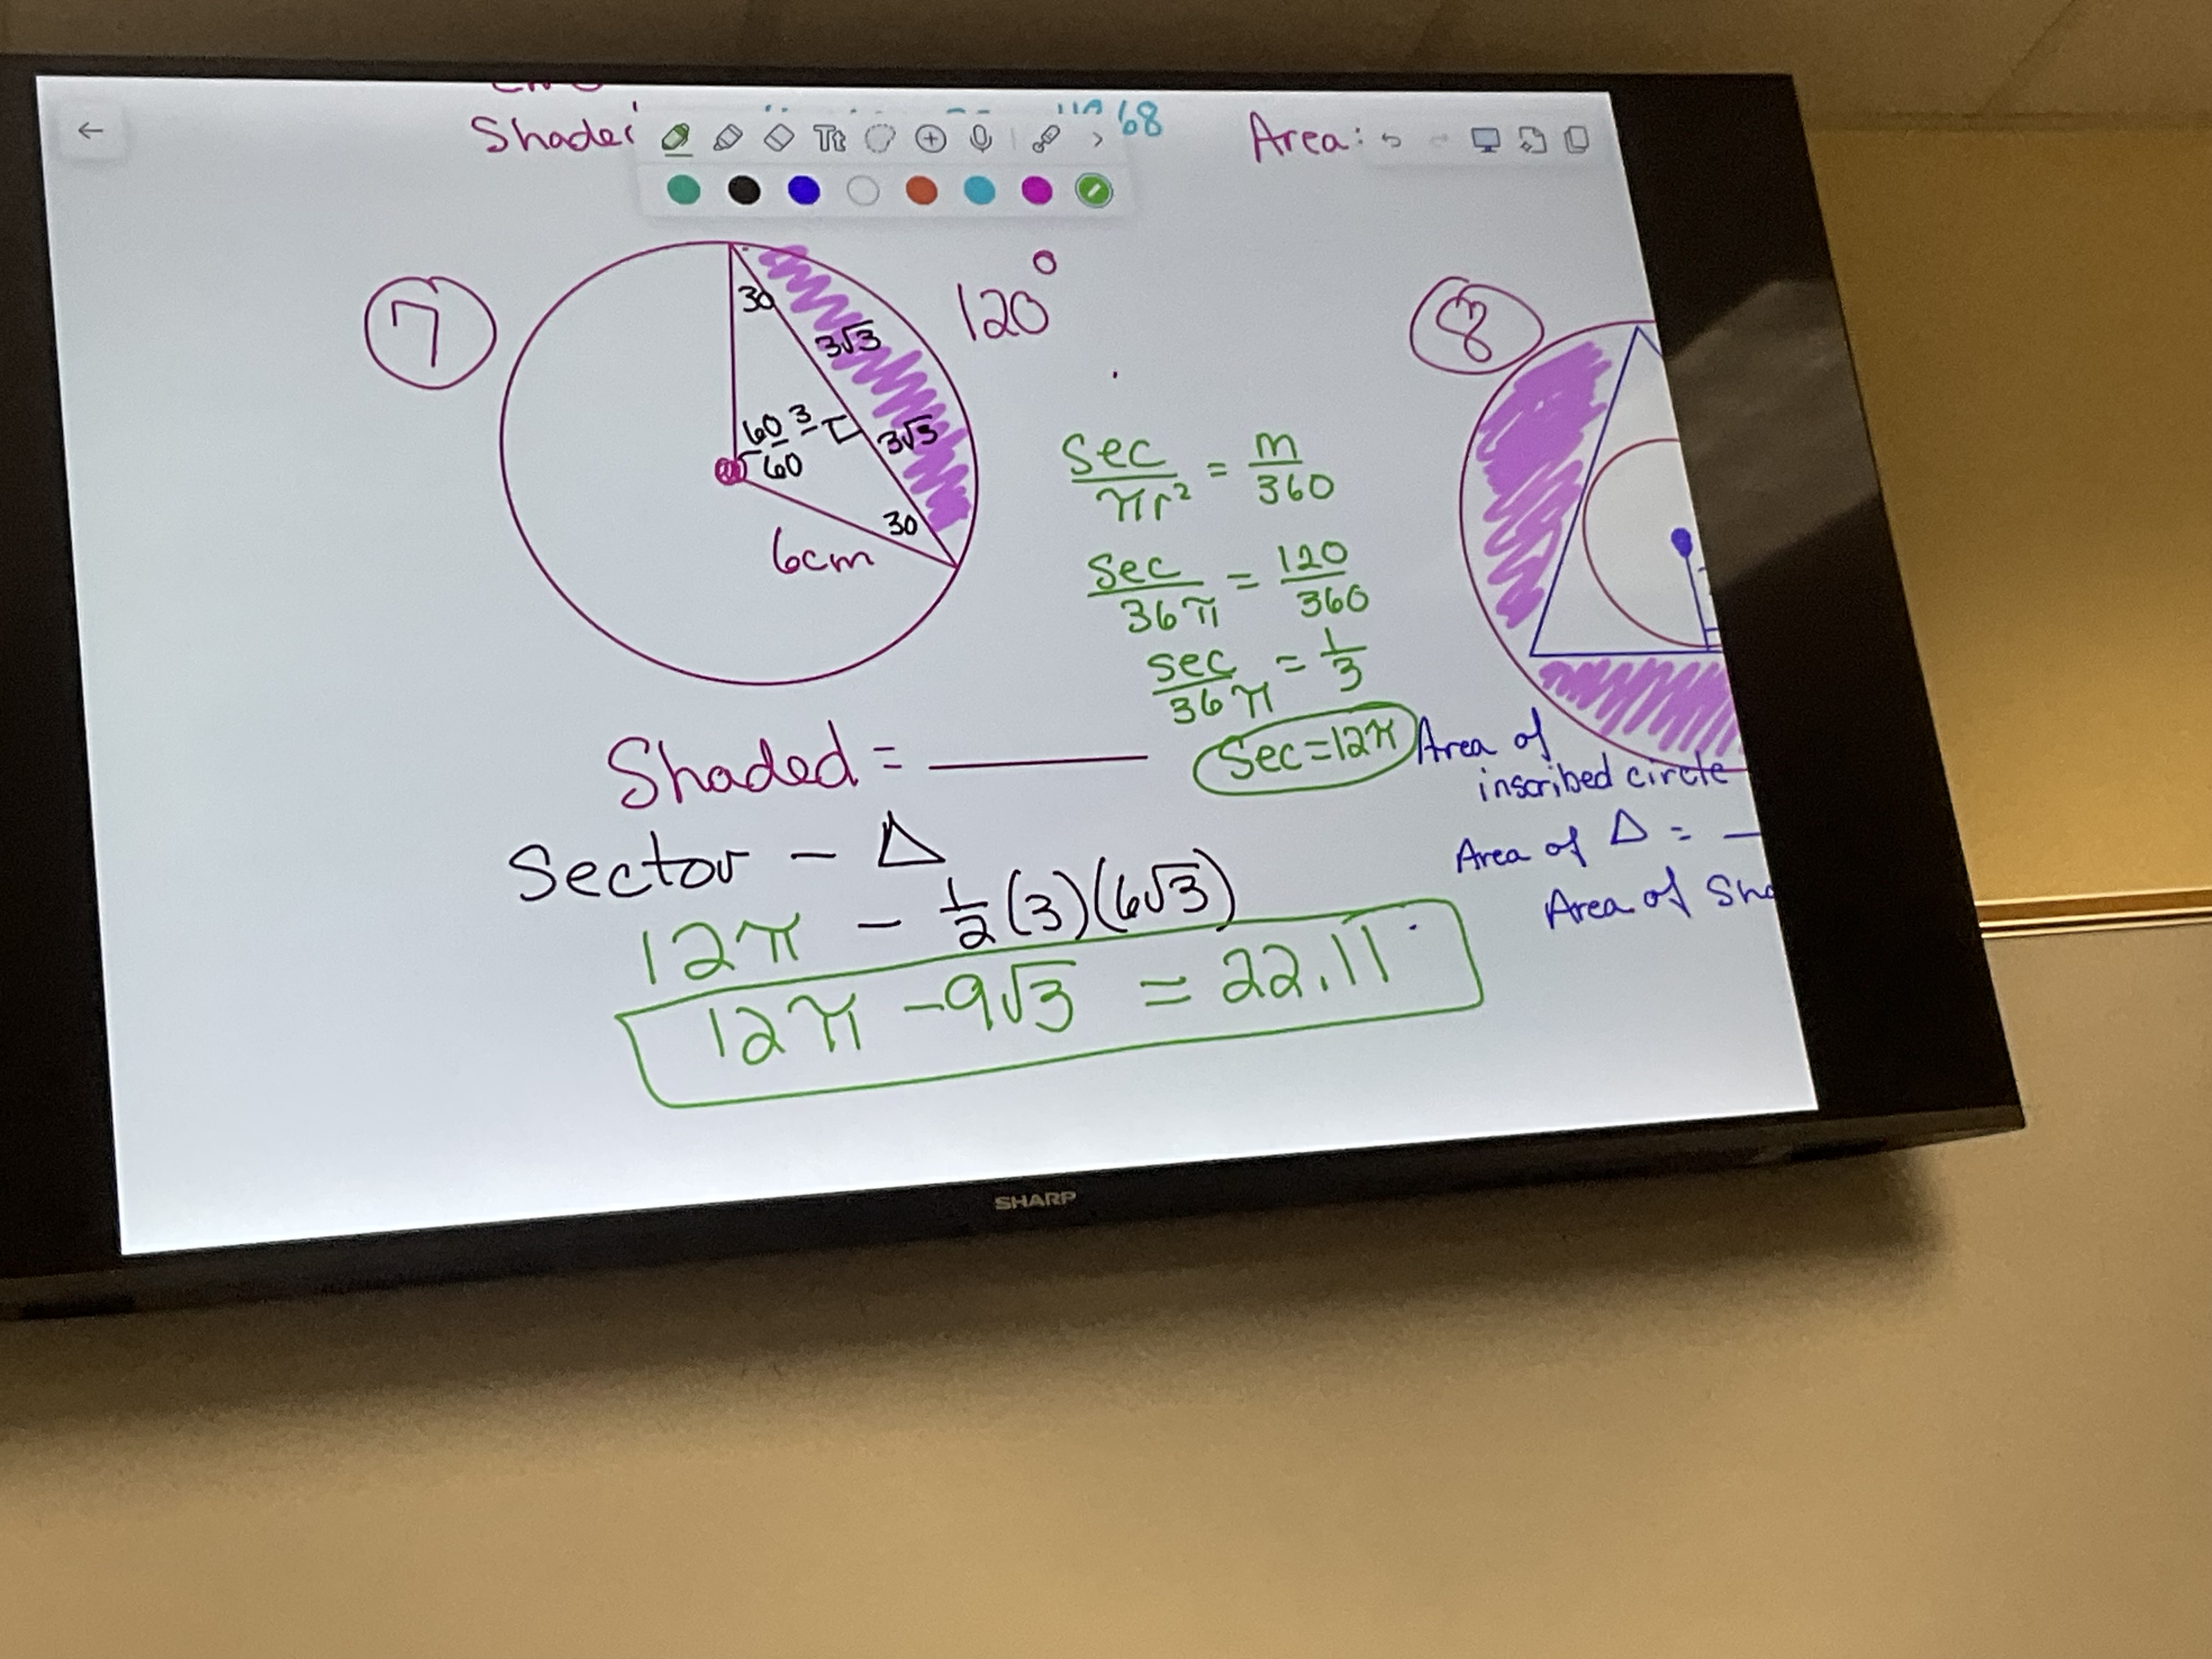 Shade
68
Area:
Tt
7
120°
30
3√3
60
3
3√3
60
30
6cm
8
sec/πr² = m/360
sec/36π = 120/360
sec/36π = 1/3
Sec=12π
Shaded = ______
Sector - Δ
12π - 1/2(3)(6√3)
12π - 9√3 = 22.11
Area of
inscribed circle
Area of Δ = _
Area of Sha
SHARP